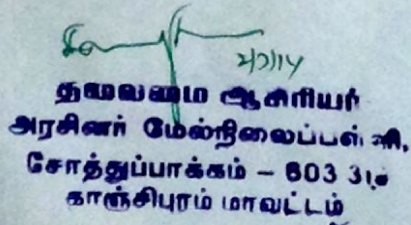 2/7/14
தலைமை ஆசிரியர்
அரசினர் மேல்நிலைப்பள்ளி,
சோத்துப்பாக்கம் – 603 31
காஞ்சிபுரம் மாவட்டம்